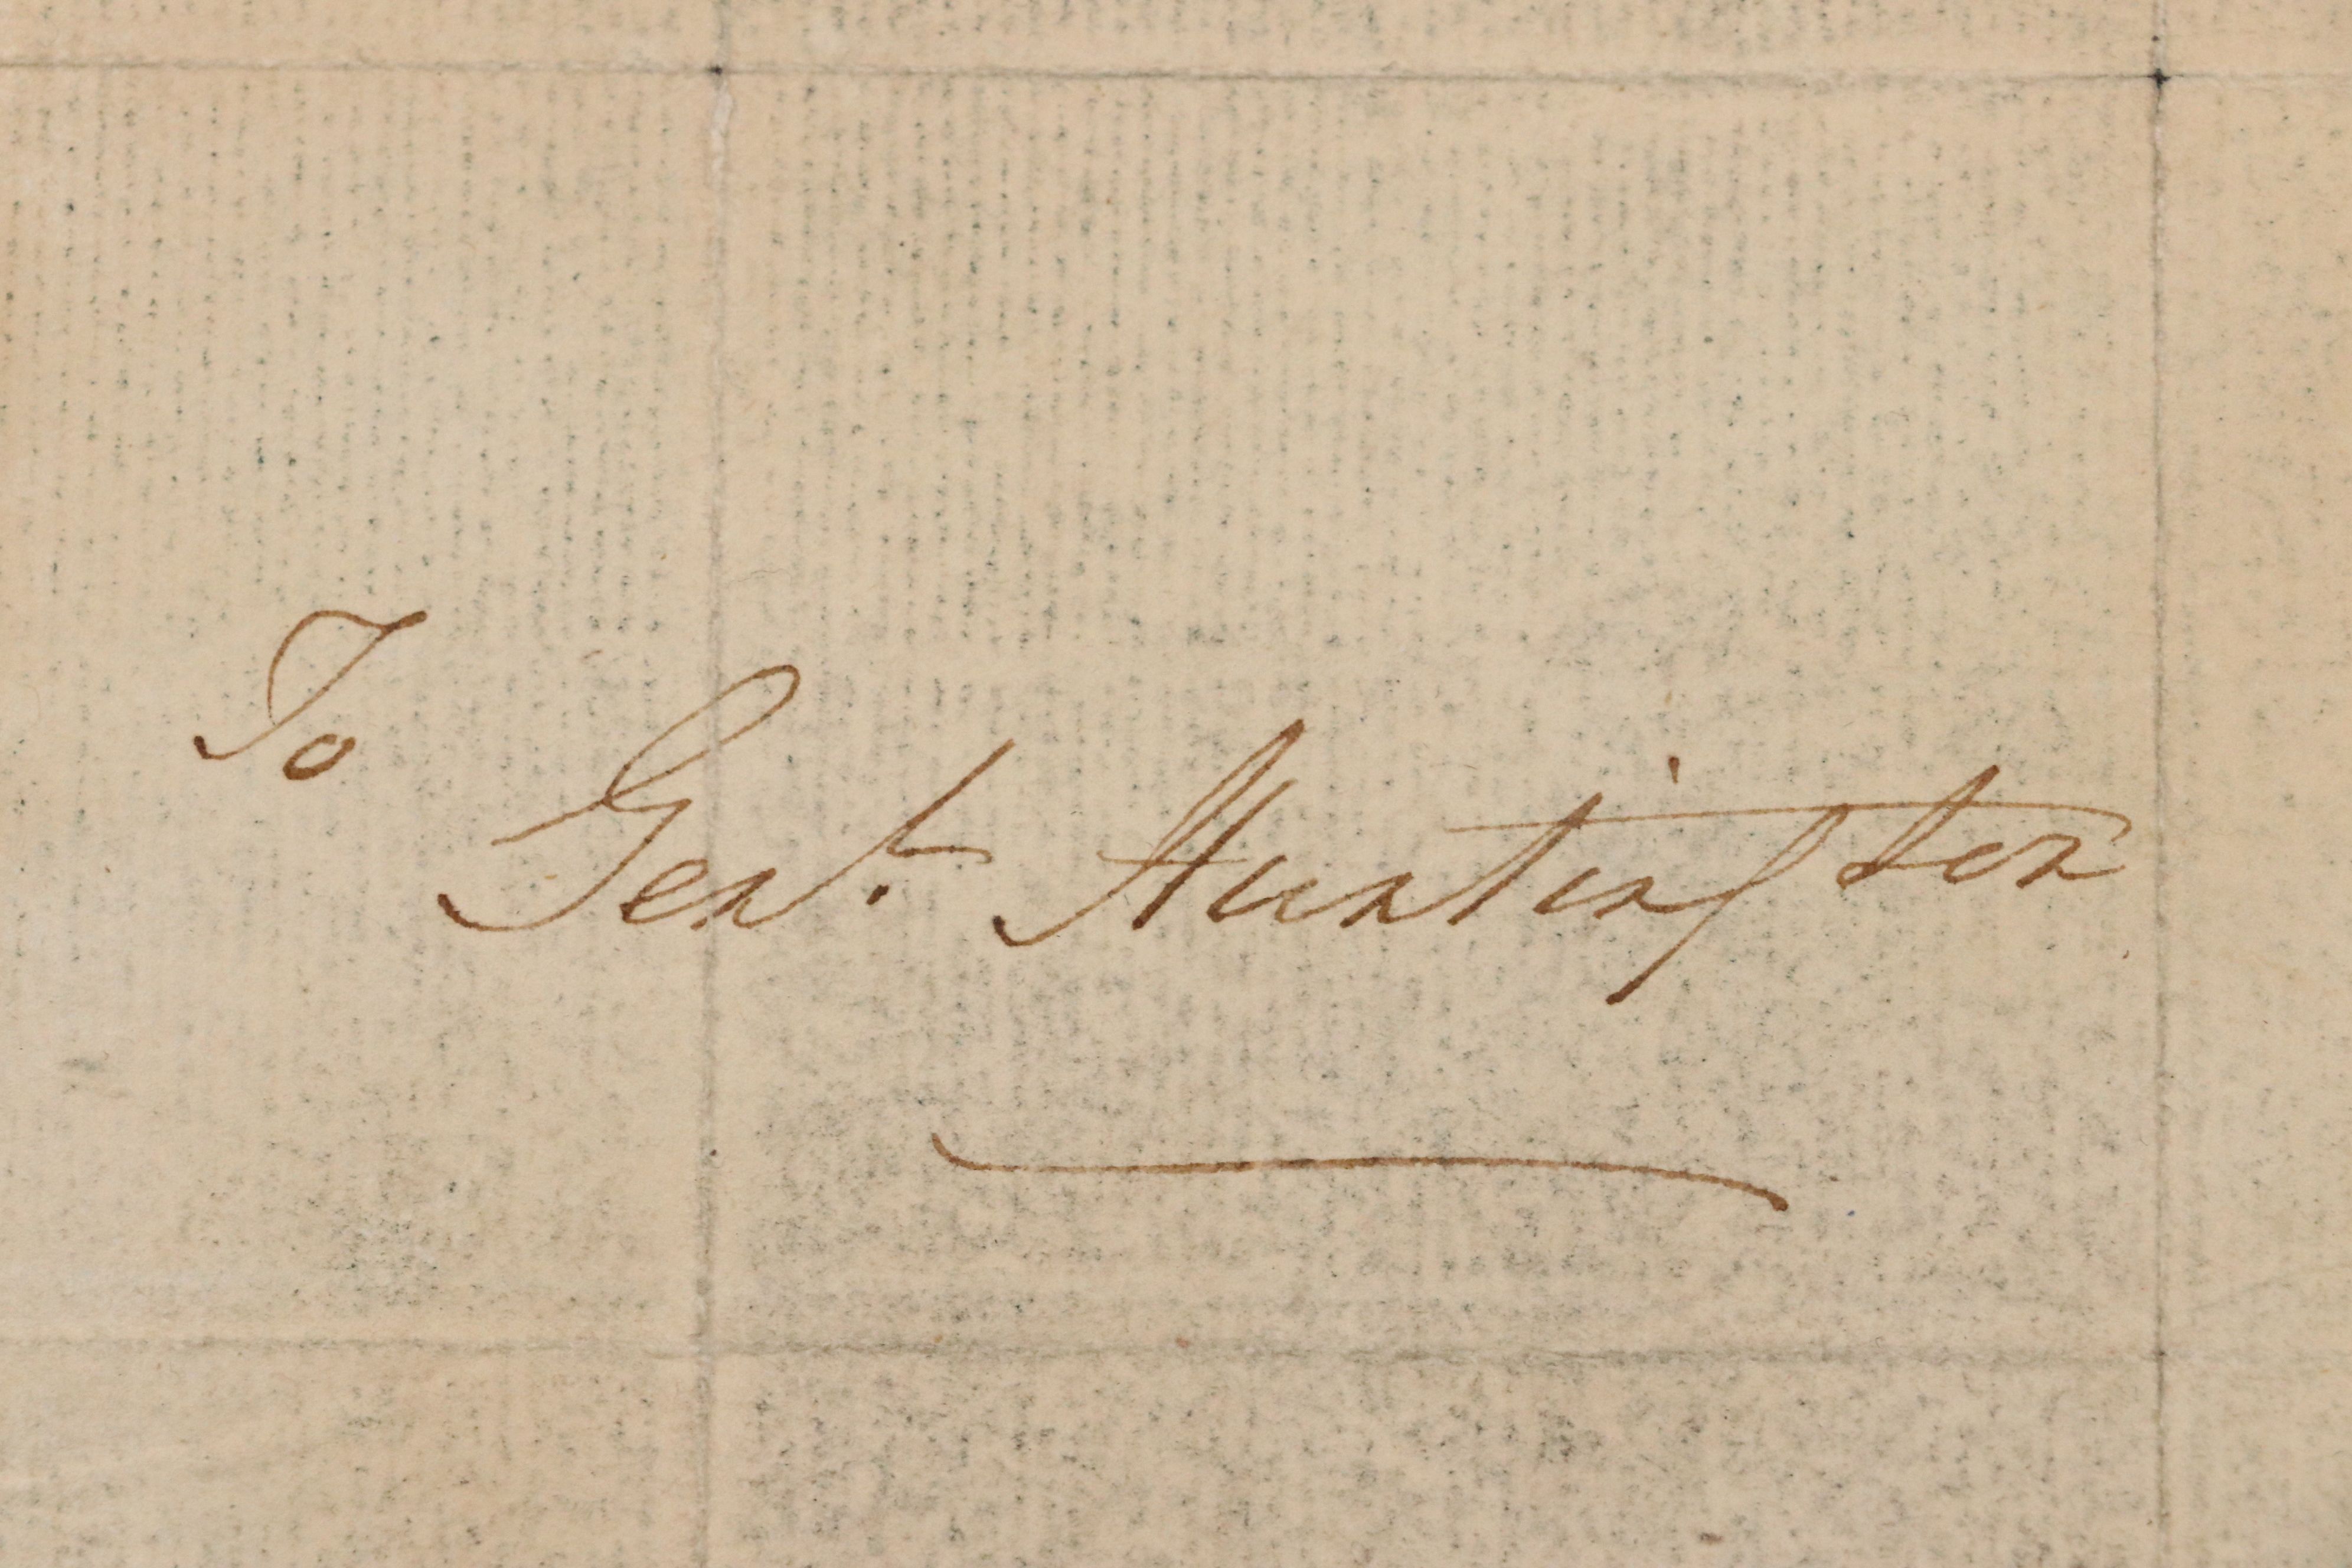 To
Genl. Huntington